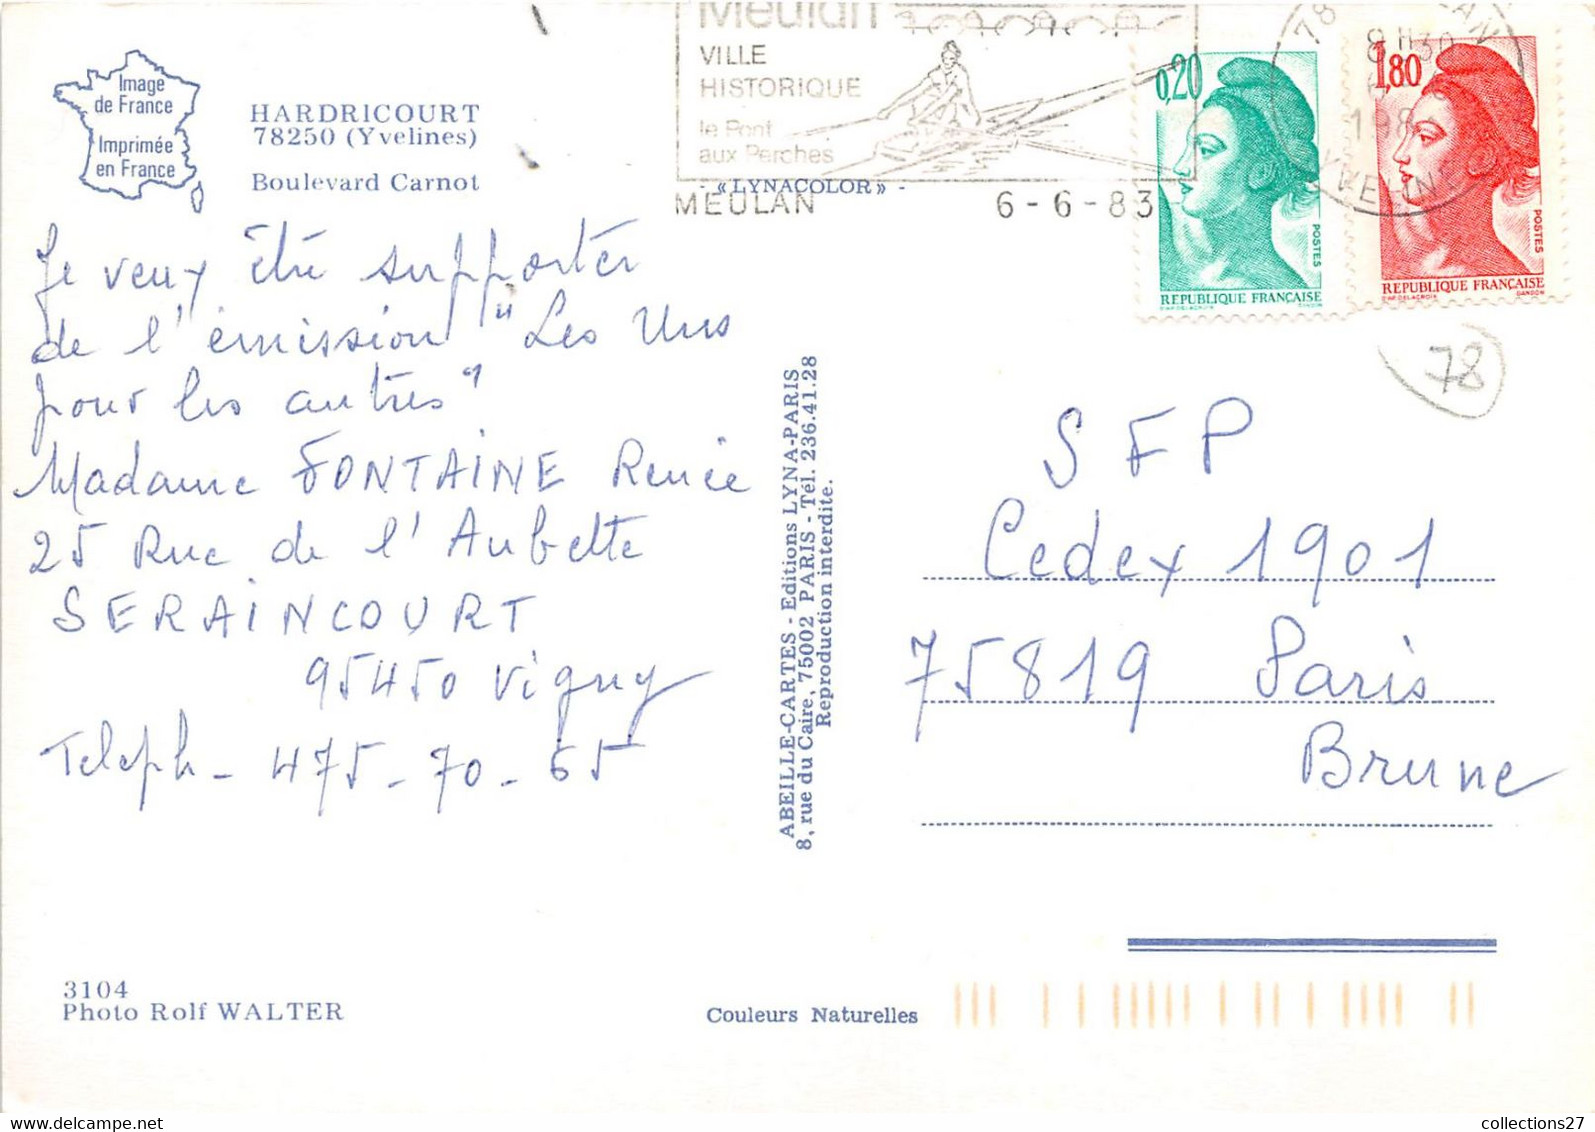 Image
de France
Imprimée
en France
HARDRICOURT
78250 (Yvelines)
Boulevard Carnot
Meulan
VILLE
HISTORIQUE
le Pont
aux Perches
MEULAN 6 - 6 - 83
- « LYNACOLOR » -
78
8 H 30
198
YVELIN
0,20
POSTES
REPUBLIQUE FRANÇAISE
D'AP. DELACROIX GANDON
1,80
POSTES
REPUBLIQUE FRANÇAISE
D'AP. DELACROIX GANDON
78
Je veux être supporter
de l'émission "Les Uns
pour les autres"
Madame FONTAINE Renée
25 Rue de l'Aubette
SERAINCOURT
95450 Vigny
Teleph - 475 - 70 - 65
ABEILLE-CARTES - Editions LYNA-PARIS
8, rue du Caire, 75002 PARIS - Tél. 236.41.28
Reproduction interdite.
SFP
Cedex 1901
75819 Paris
Brune
3104
Photo Rolf WALTER
Couleurs Naturelles
collections27